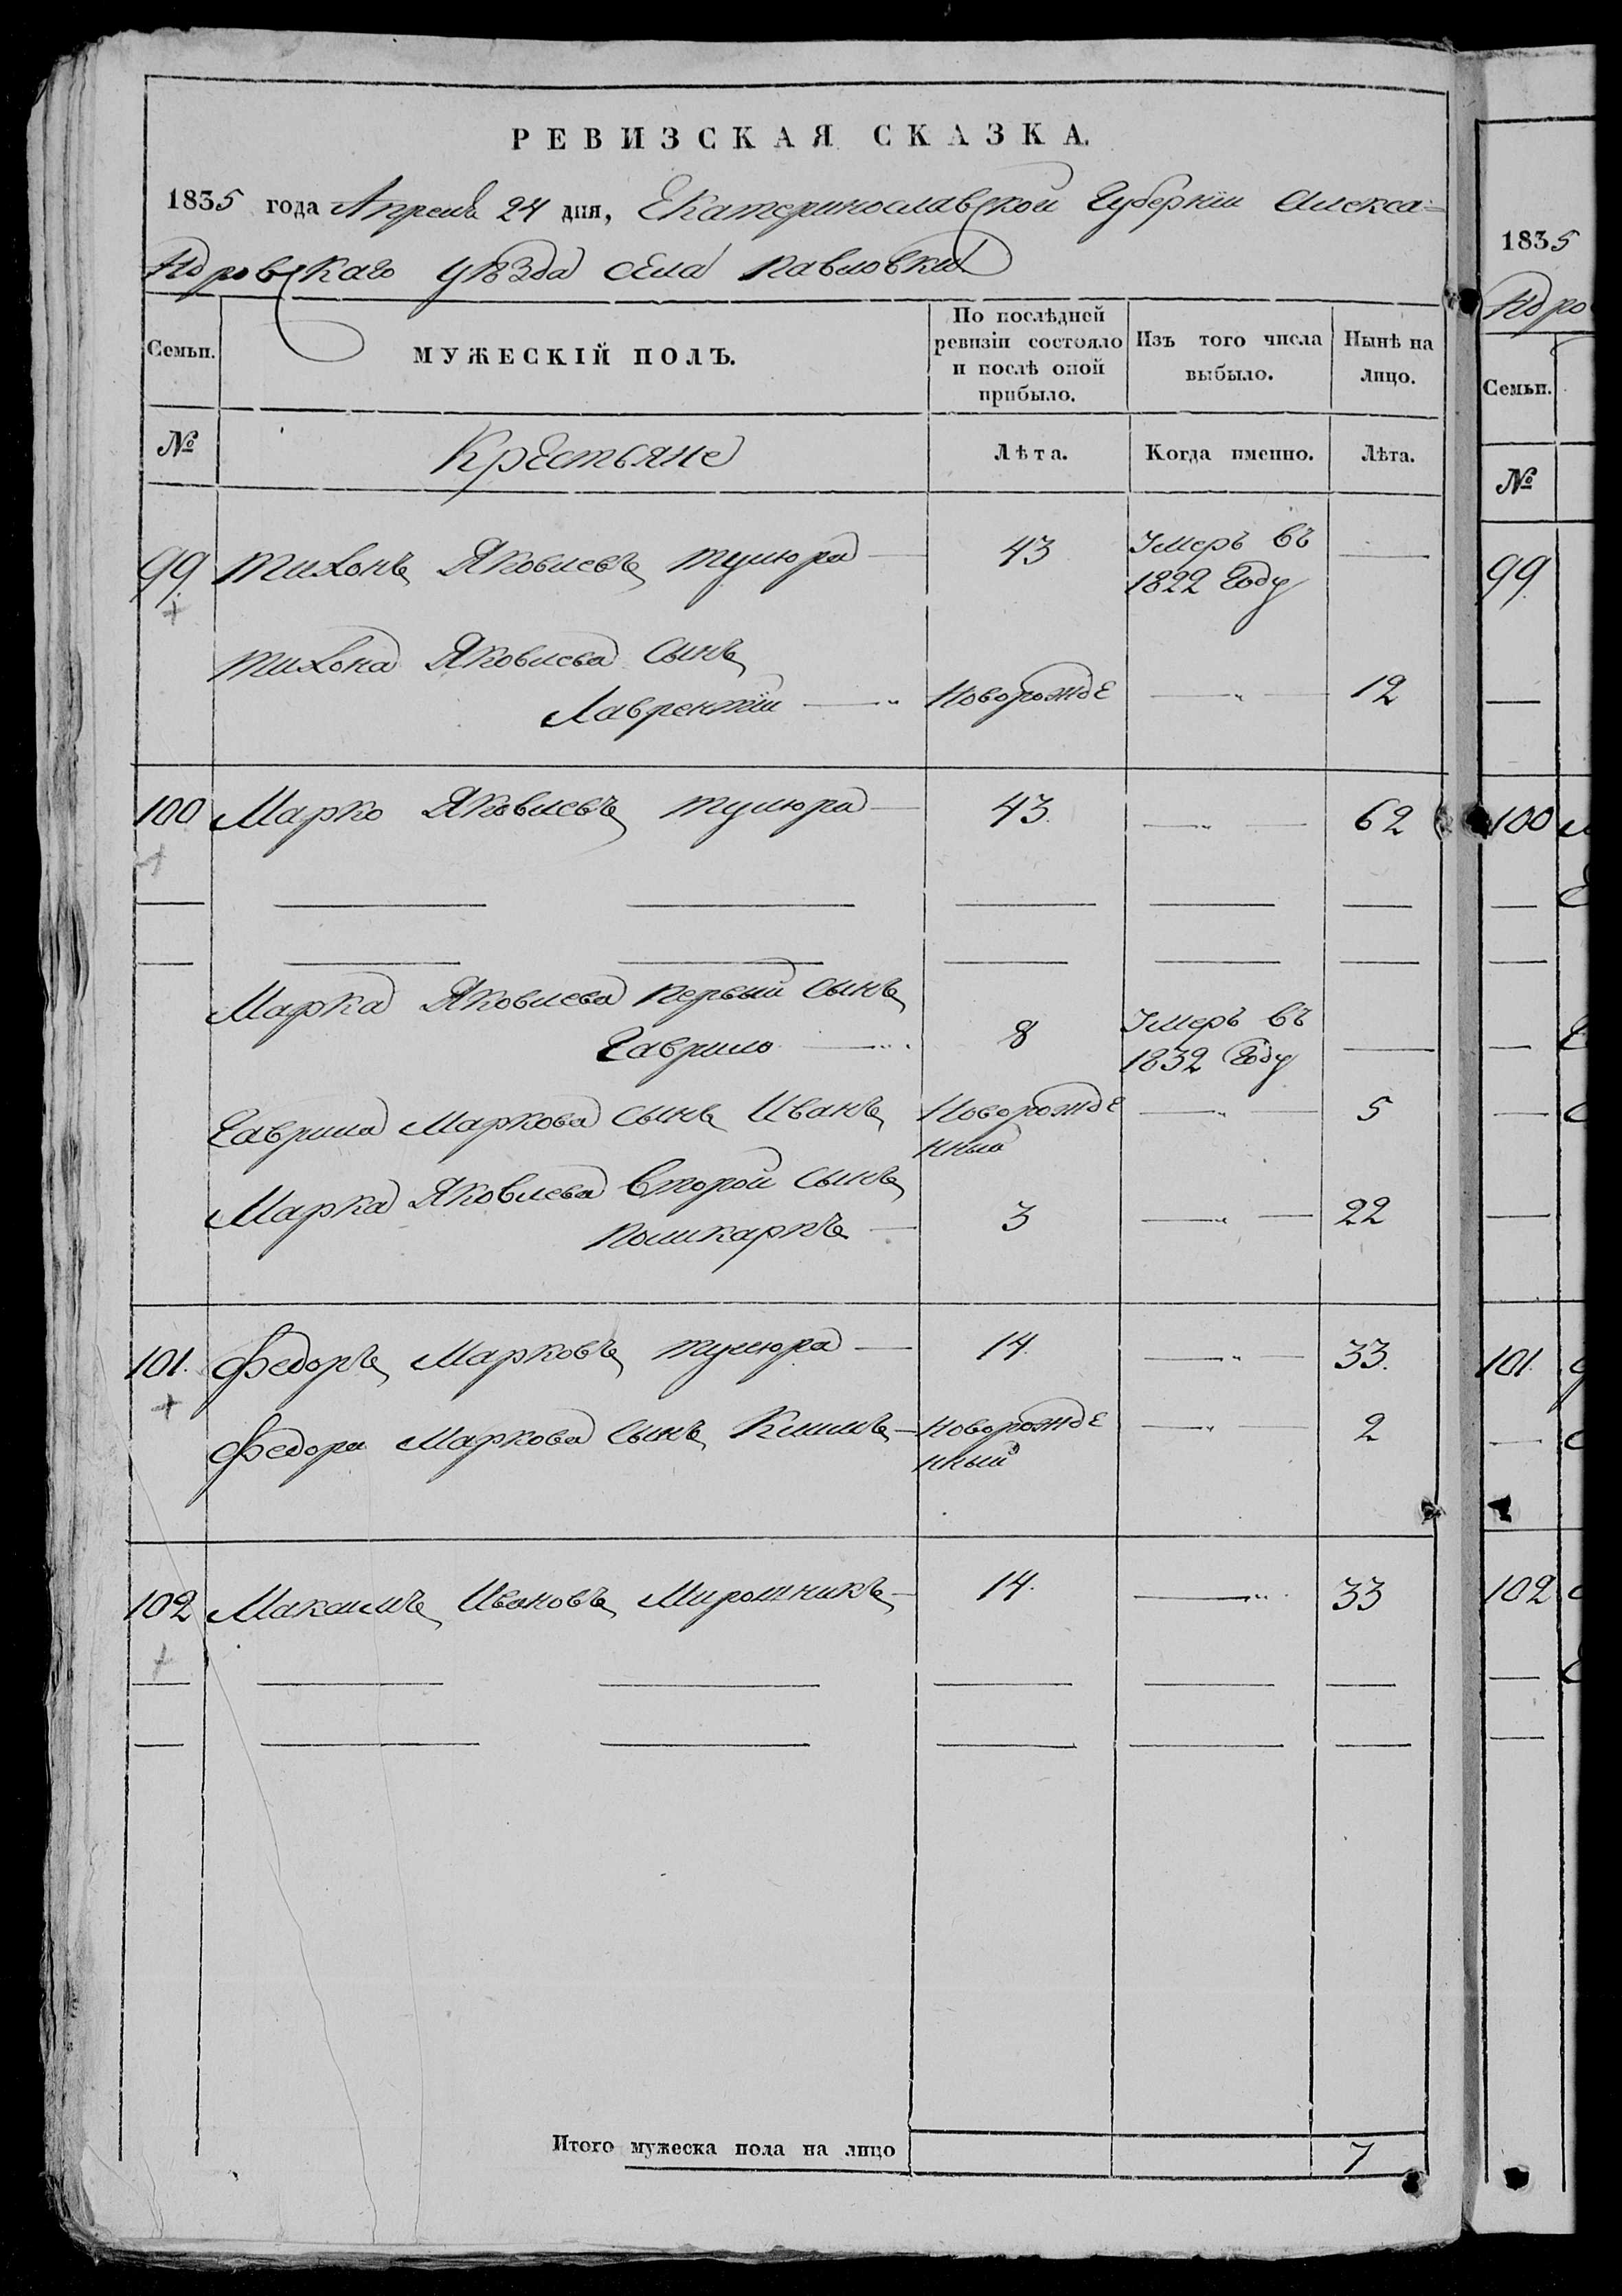 РЕВИЗСКАЯ СКАЗКА.
1835 года Апреля 24 дня, Екатеринославской Губернии Алекса=
ндровскаго уѣзда села Павловки
Семьи.
МУЖЕСКІЙ ПОЛЪ.
По послѣдней ревизіи состояло и послѣ оной прибыло.
Изъ того числа выбыло.
Нынѣ на лицо.
№
Крестьяне
Лѣта.
Когда именно.
Лѣта.
99 Тихонъ Яковлевъ Тулюра — 43 Умеръ въ —
1822 Году
Тихона Яковлева сынъ
Лаврентіи — Новорожде — 12
100 Марко Яковлевъ Тулюра — 43. — 62
Марка Яковлева первый сынъ
Гаврило — 8 Умеръ въ —
1832 Году
Гаврила Маркова сынъ Иванъ Новорожде — 5
нный
Марка Яковлева второй сынъ
Поликарпъ — 3 — 22
101. Федоръ Марковъ Тулюра — 14. — 33.
Федора Маркова сынъ Климъ — Новорожде — 2
нный
102 Максимъ Ивановъ Мирошникъ — 14. — 33
Итого мужеска пола на лицо 7
1835
ндро
Семьи.
№
99
100
101.
102